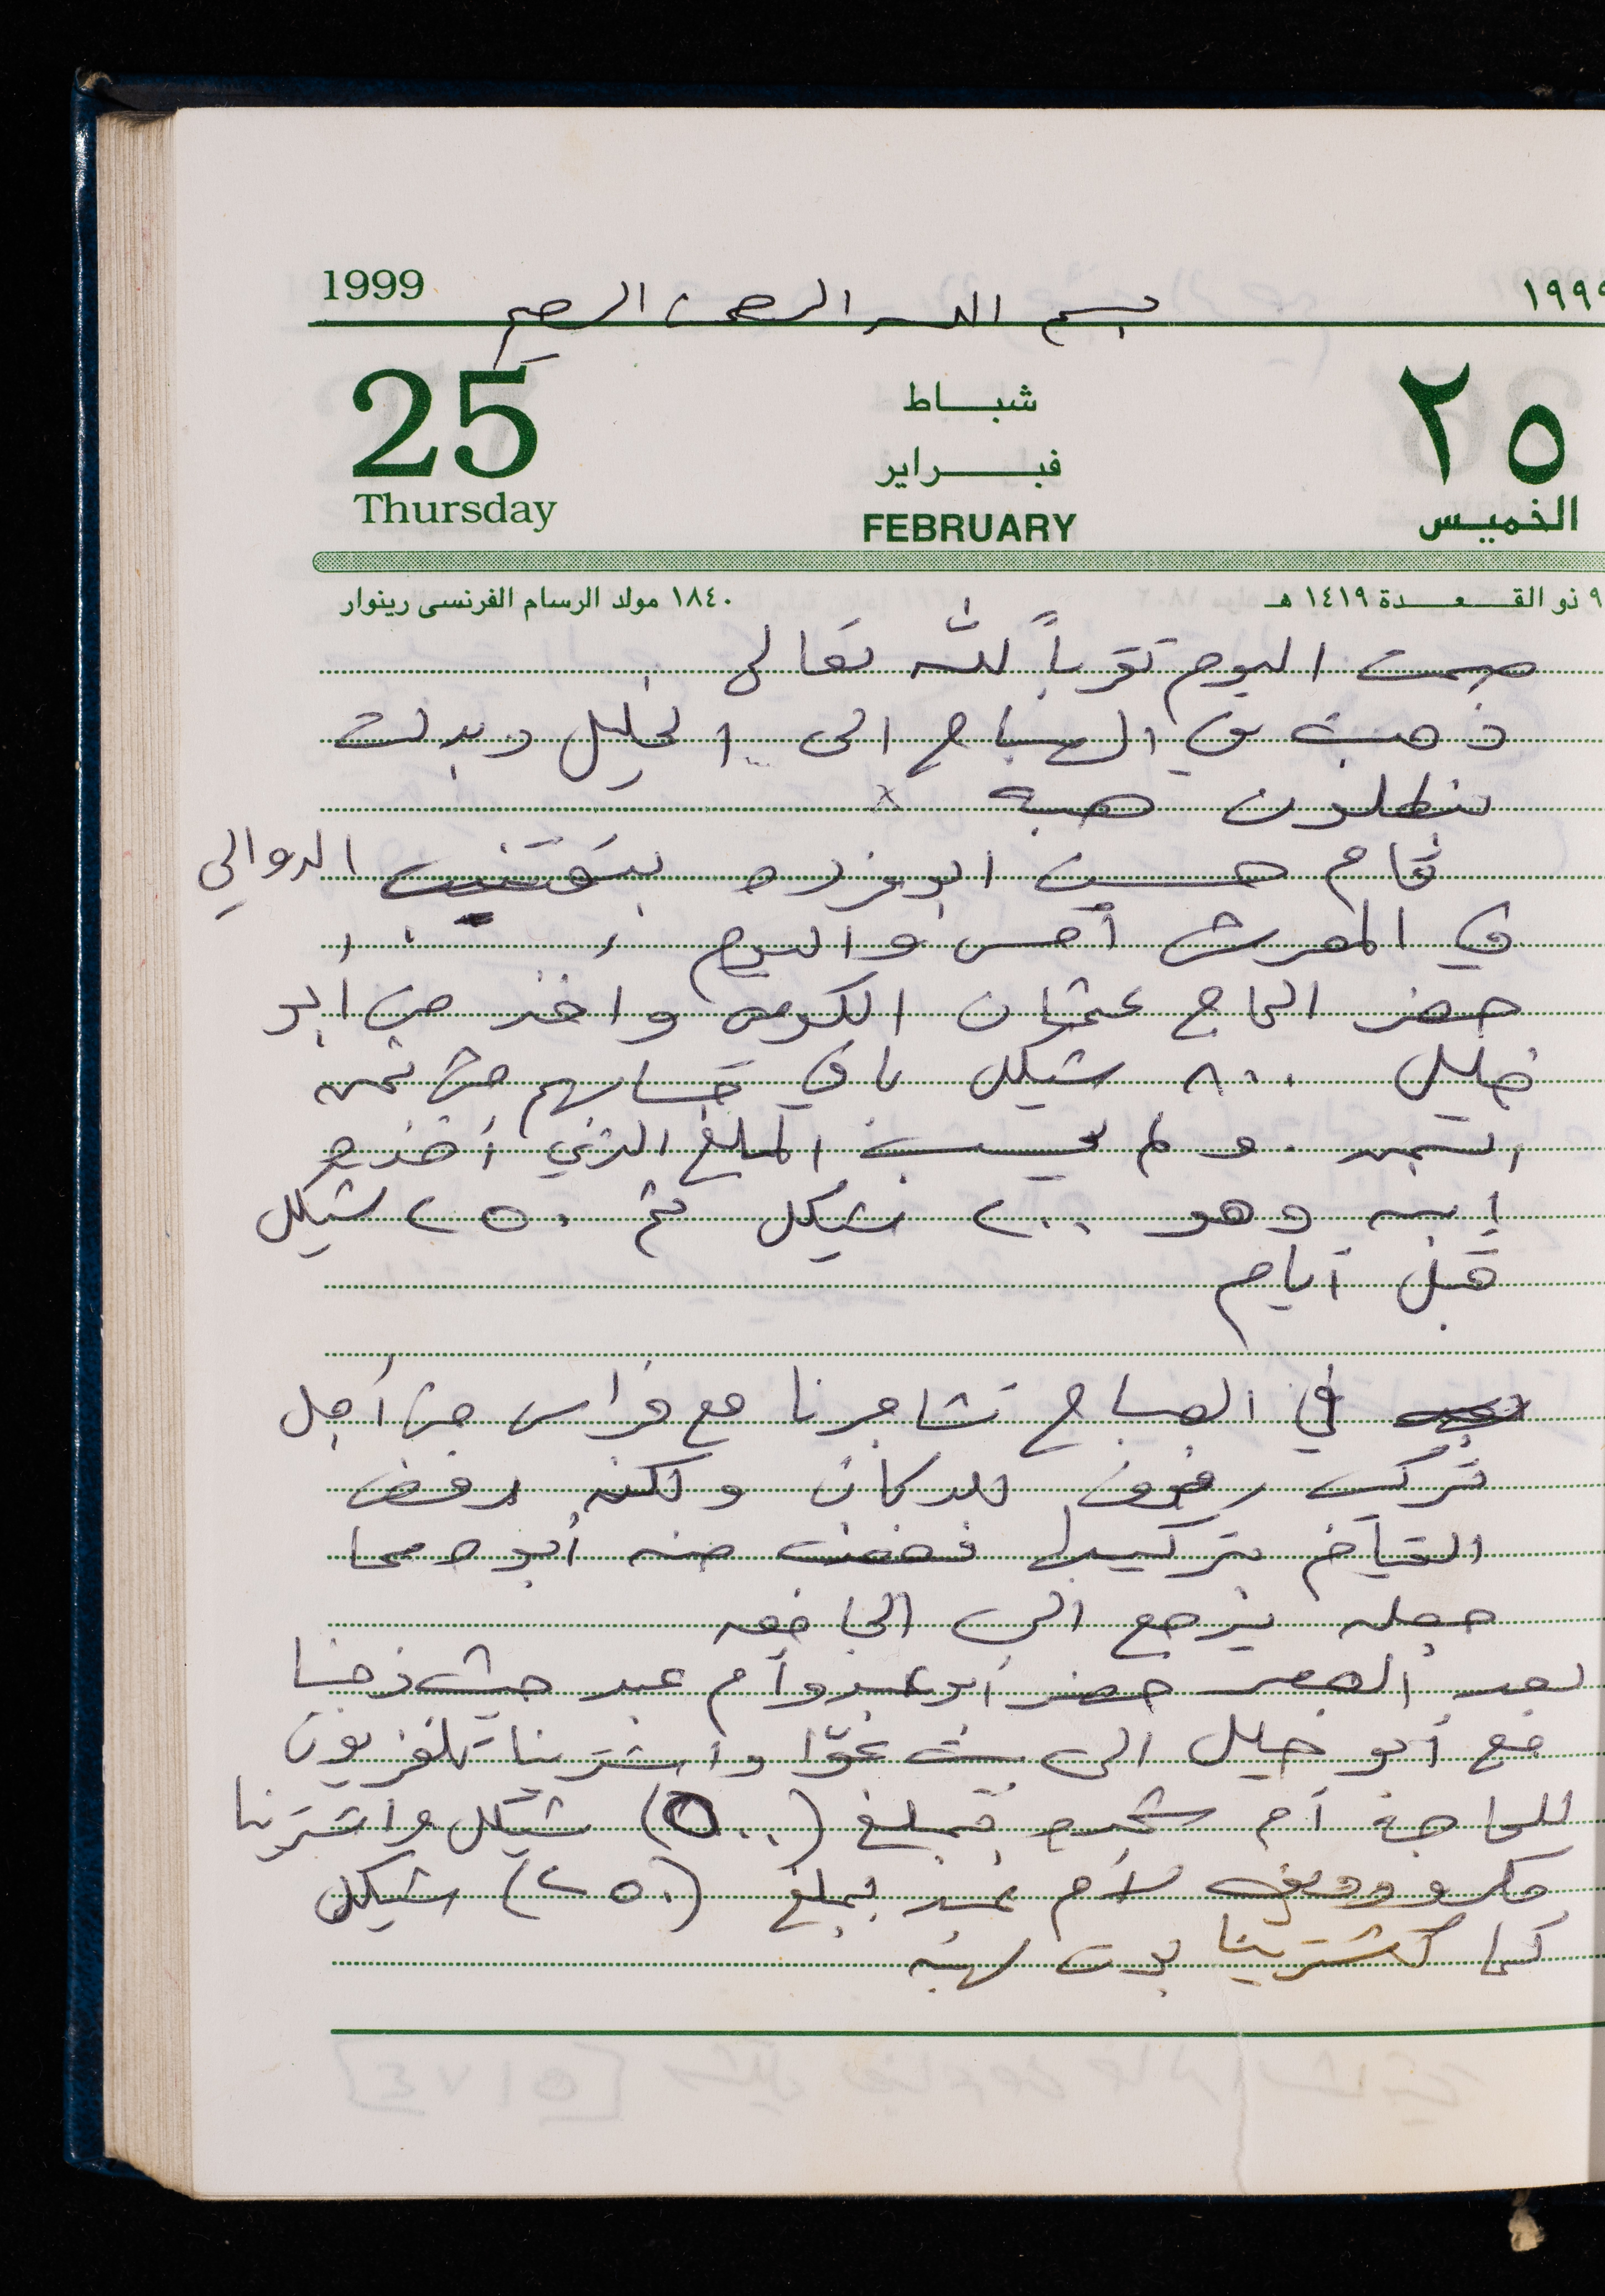 1999 بسم الله الرحمن الرحيم ١٩٩٩
25 شباط ٢٥
فبراير
Thursday FEBRUARY الخميس
٩ ذو القعدة ١٤١٩ هـ ١٨٤٠ مولد الرسام الفرنسى رينوار
صمت اليوم تقرباً لله تعالى
ذهبت في الصباح الى الخليل وبدلت
بنطلون هبه
قام حسين ابو بتقنيب الدوالي
في المعرش أمس واليوم
حضر الحاج عثمان الكومي واخذ من ابو
خليل ٨٠٠ شيكل باقي حسابهم من ثمن
ولم يحسب المبلغ الذي أخذه
إبنه وهو ٢٠٠ شيكل ثم ٢٥٠ شيكل
قبل أيام
في الصباح تشاجرنا مع فراس من أجل
تركيب رفوف للدكان ولكنه رفض
القيام بتركيبها فغضب منه أبوه مما
جعله يرجع الى الجامعه
بعد العصر حضر أبو عبد وأم عبد حيث ذهبنا
مع أبو خليل الى بيت عوّا واشترينا تلفزيون
للحاجة أم بمبلغ (٥٠٠) شيكل واشترينا
مكروويف لأم عبد بمبلغ (٢٥٠) شيكل
كما اشترينا بوت لهبه